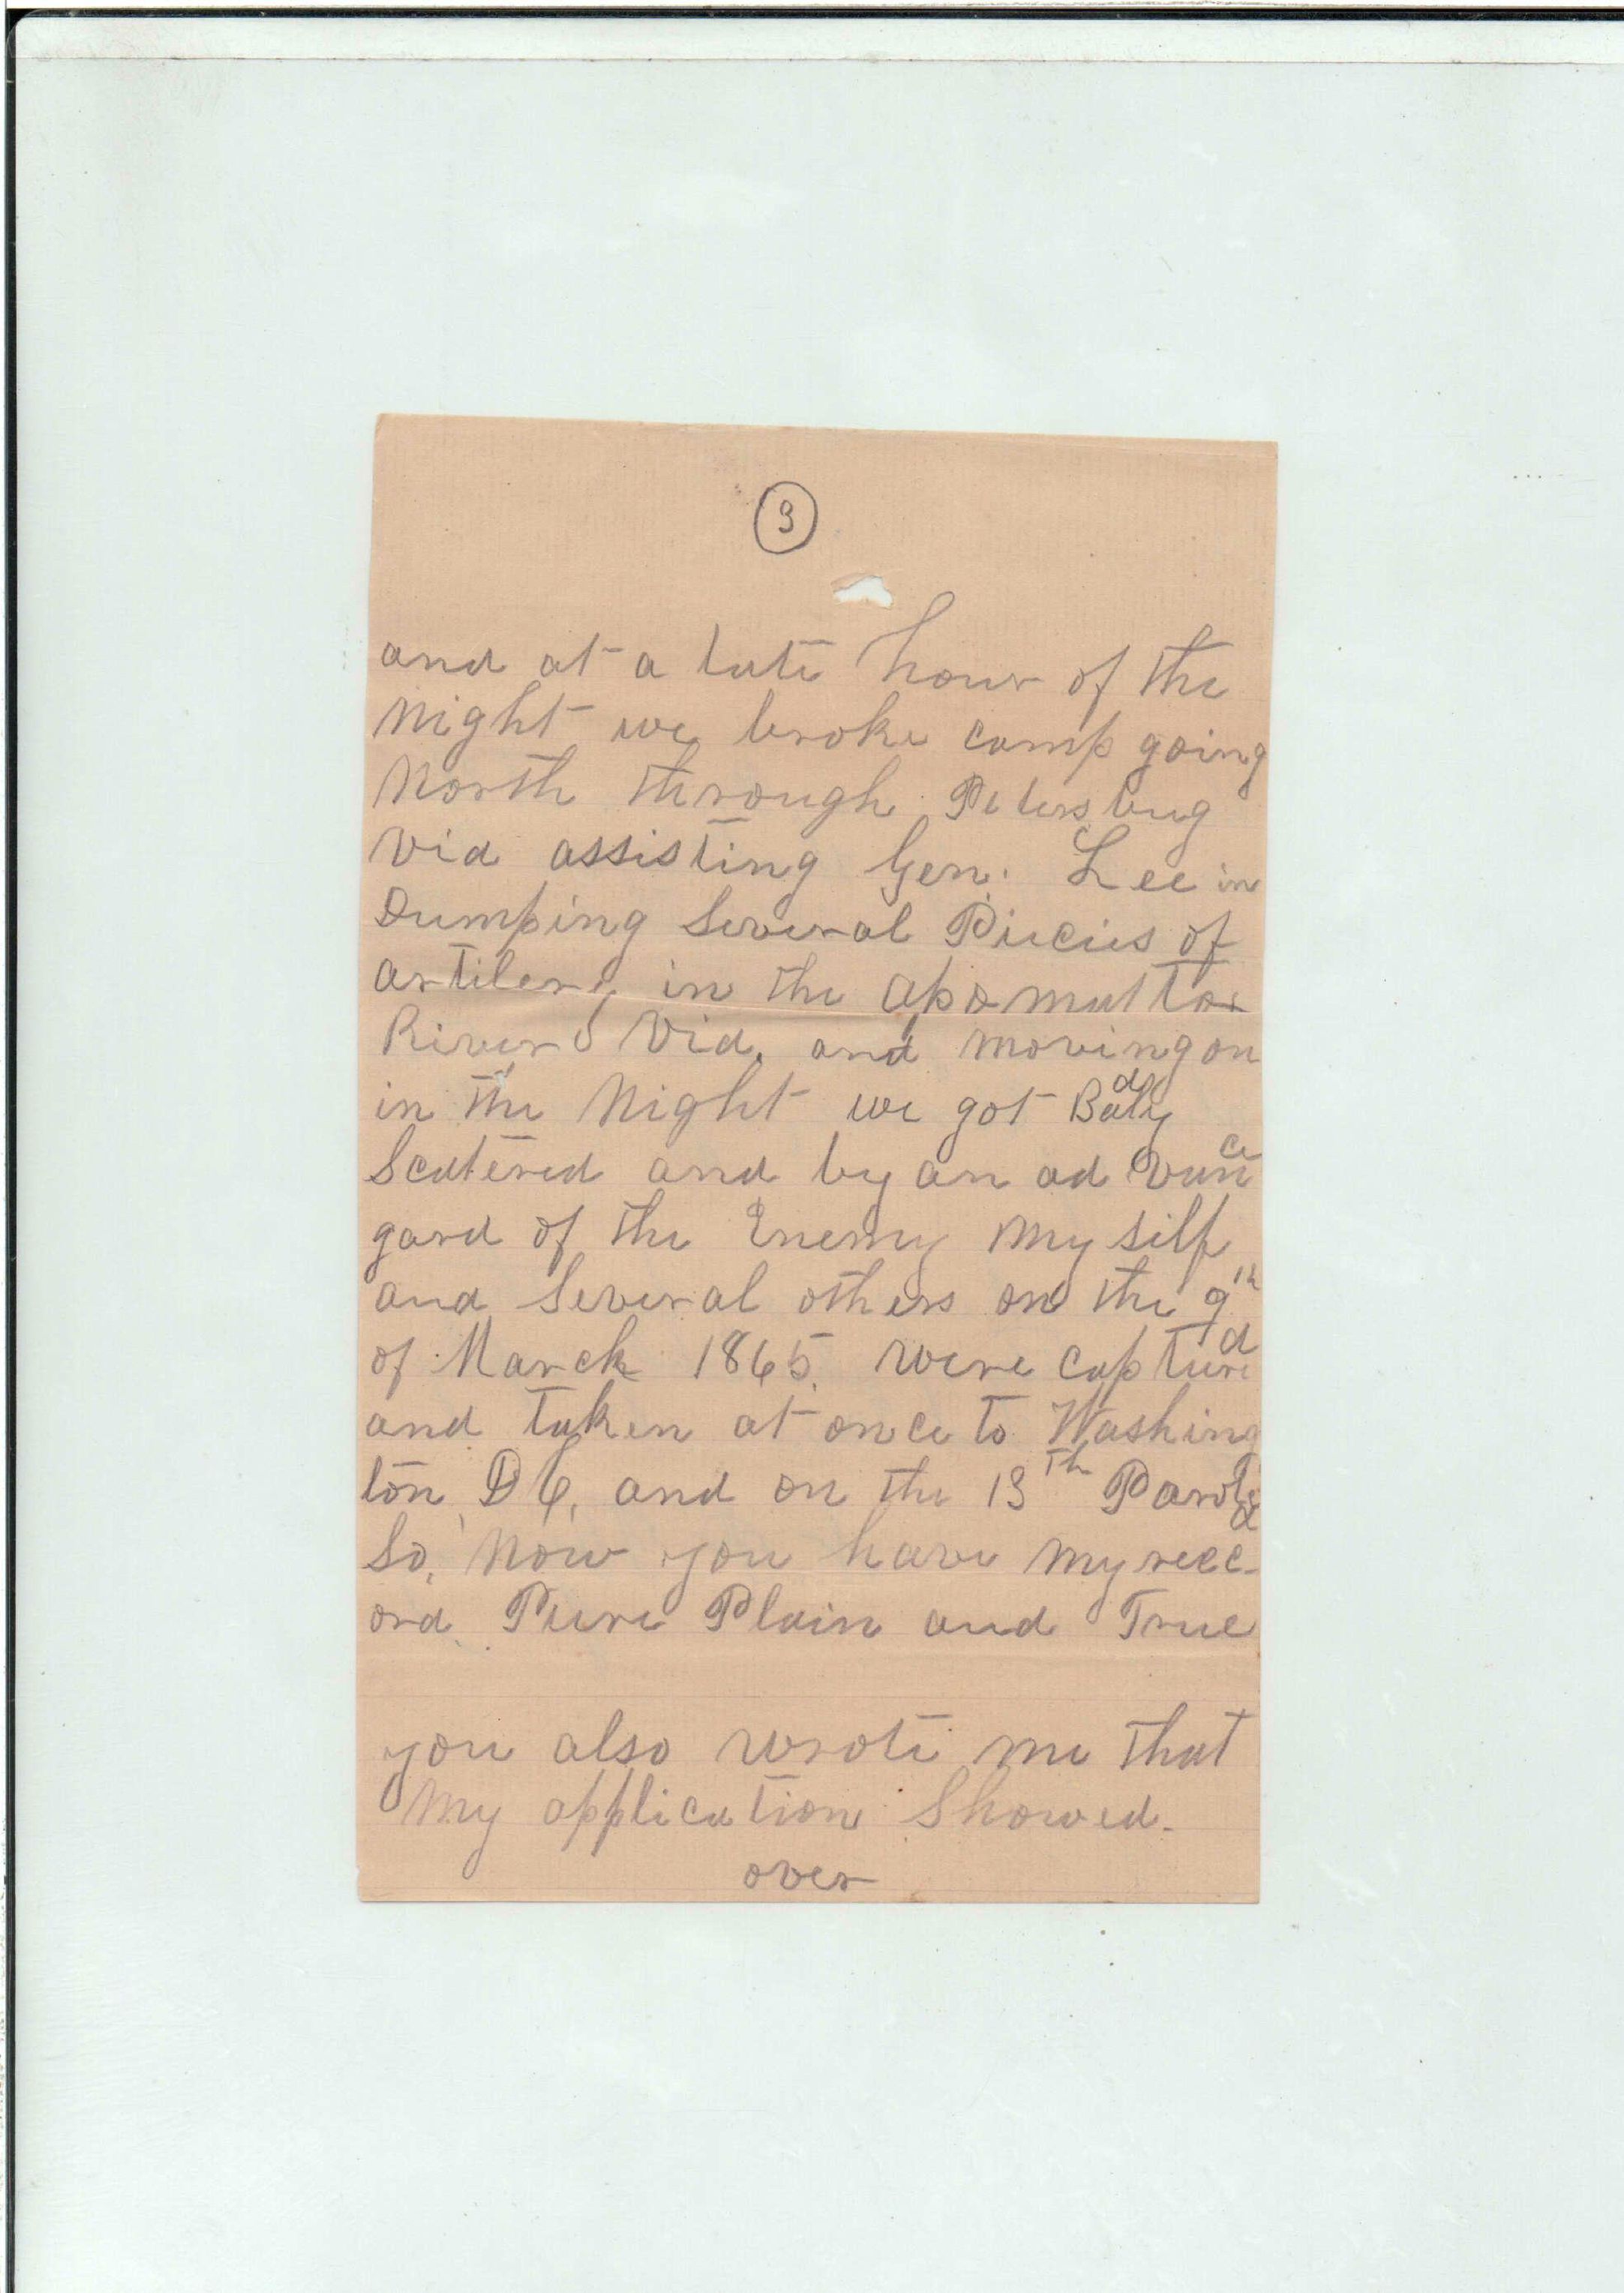 3
and at a late hour of the
Night we broke camp going
North through Petersbug
Vid assisting Gen. Lee in
Dumping Several Piecies of
artilery in the apomattox
River Vid, and moving on
in the Night we got Badly
Scatered and by an ad vance
gard of the Enemy my self
and Several others on the 9th
of March 1865. were captured
and taken at once to Washing
ton, DC, and on the 13th Paroled
So, Now you have my recc-
ord. Pure Plain and True
you also wrote me that
My application Showed-
over